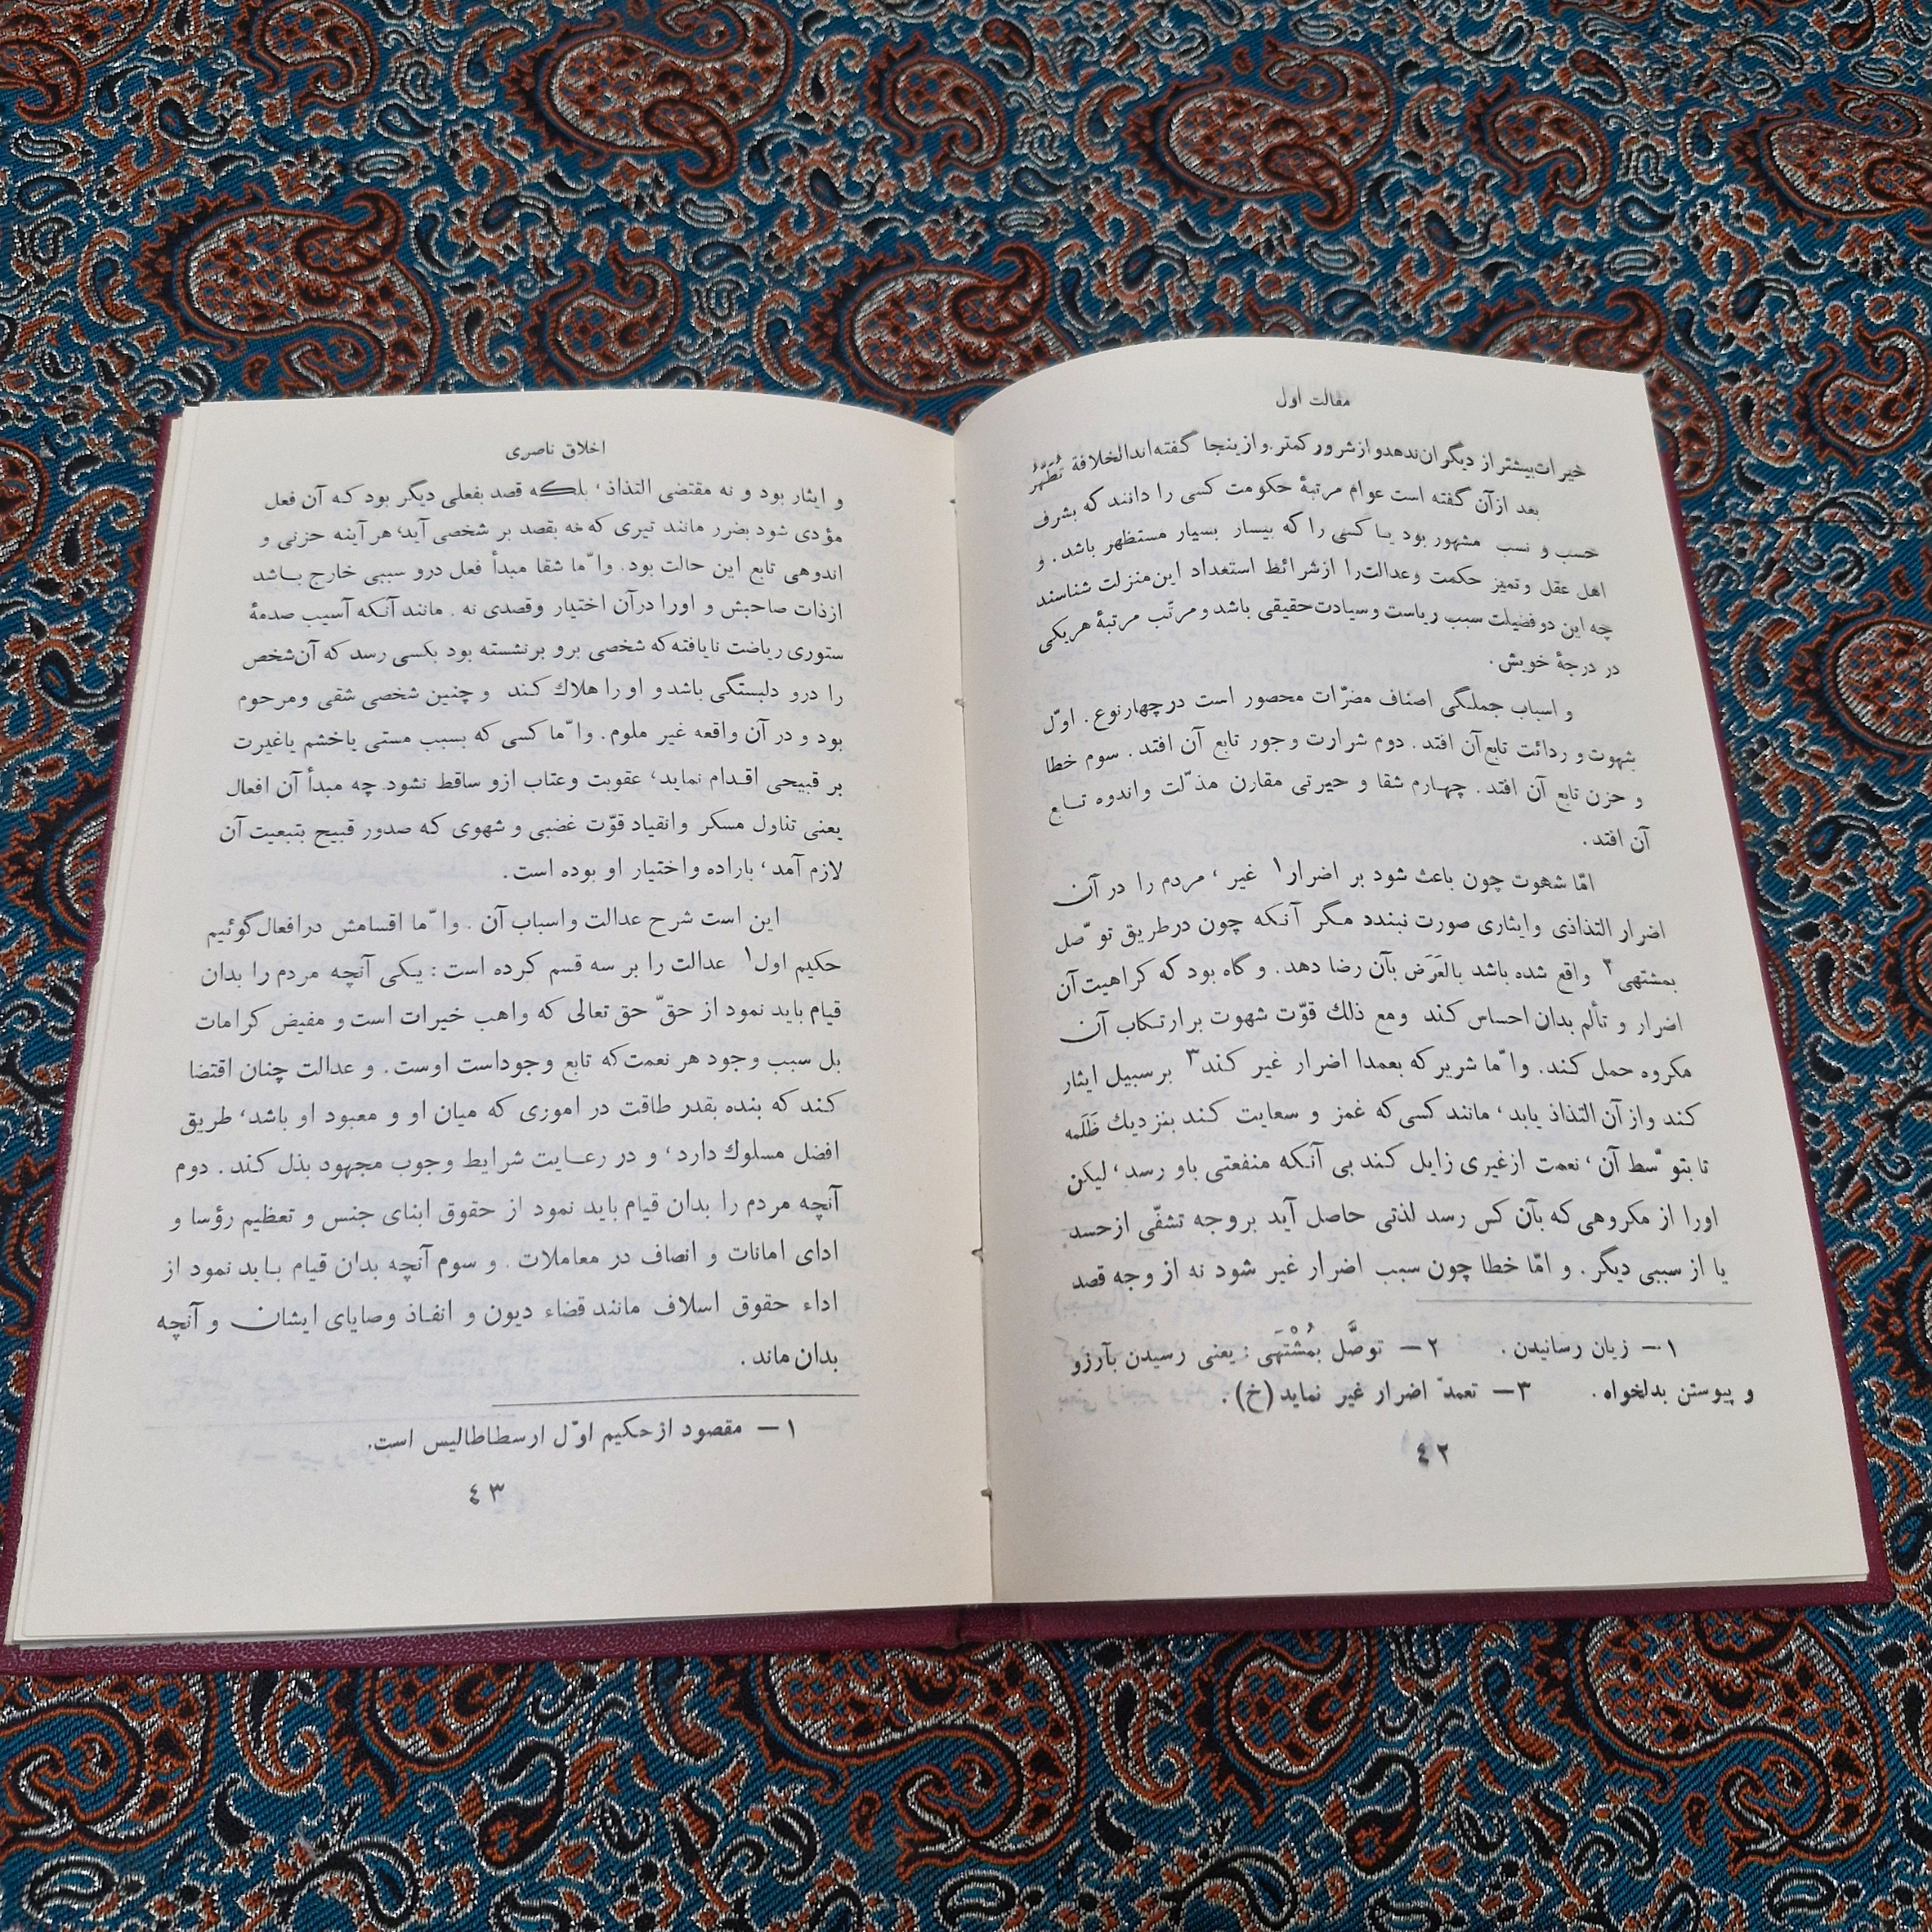 مقالت اول
خیرات بیشتر از دیگران ندهد و از شرور کمتر. و از ینجا گفته‌اند الخلافة تُطَهِّرُ
بعد از آن گفته است عوام مرتبهٔ حکومت کسی را دانند که بشرف
حسب و نسب مشهور بود یا کسی را که بیسار بسیار مستظهر باشد. و
اهل عقل و تمیز حکمت و عدالت را از شرائط استعداد این منزلت شناسند
چه این دو فضیلت سبب ریاست و سیادت حقیقی باشد و مرتّب مرتبهٔ هریکی
در درجهٔ خویش.
و اسباب جملگی اصناف مضرّات محصور است در چهار نوع. اوّل
شهوت و ردائت تابع آن افتد. دوم شرارت و جور تابع آن افتد. سوم خطا
و حزن تابع آن افتد. چهارم شقا و حیرتی مقارن مذلّت و اندوه تابع
آن افتد.
امّا شهوت چون باعث شود بر اضرار۱ غیر، مردم را در آن
اضرار التذاذی و ایثاری صورت نبندد مگر آنکه چون در طریق توصّل
بمشتهی۲ واقع شده باشد بالعَرَض بآن رضا دهد. و گاه بود که کراهیت آن
اضرار و تألم بدان احساس کند ومع ذلك قوّت شهوت بر ارتکاب آن
مکروه حمل کند. وامّا شریر که بعمدا اضرار غیر کند۳ بر سبیل ایثار
کند و از آن التذاذ یابد، مانند کسی که غمز و سعایت کند بنزدیك ظَلَمه
تا بتوسّط آن، نعمت از غیری زایل کند بی آنکه منفعتی باو رسد، لیکن
اورا از مکروهی که بآن کس رسد لذتی حاصل آید بر وجه تشفّی از حسد
یا از سببی دیگر. و امّا خطا چون سبب اضرار غیر شود نه از وجه قصد
۱– زیان رسانیدن. ۲– توصَّل بمُشْتَهَی: یعنی رسیدن بآرزو
و پیوستن بدلخواه. ۳– تعمدّ اضرار غیر نماید (خ).
٤٢
اخلاق ناصری
و ایثار بود و نه مقتضی التذاذ، بلکه قصد بفعلی دیگر بود که آن فعل
مؤدی شود بضرر مانند تیری که نه بقصد بر شخصی آید، هر آینه حزنی و
اندوهی تابع این حالت بود. وامّا شقا مبدأ فعل درو سببی خارج باشد
از ذات صاحبش و اورا در آن اختیار و قصدی نه. مانند آنکه آسیب صدمهٔ
ستوری ریاضت نایافته که شخصی برو برنشسته بود بکسی رسد که آن شخص
را درو دلبستگی باشد و او را هلاك کند و چنین شخصی شقی و مرحوم
بود و در آن واقعه غیر ملوم. وامّا کسی که بسبب مستی یا خشم یا غیرت
بر قبیحی اقدام نماید، عقوبت و عتاب ازو ساقط نشود. چه مبدأ آن افعال
یعنی تناول مسکر و انقیاد قوّت غضبی و شهوی که صدور قبیح بتبعیت آن
لازم آمد، باراده و اختیار او بوده است.
این است شرح عدالت و اسباب آن. وامّا اقسامش در افعال گوئیم
حکیم اول۱ عدالت را بر سه قسم کرده است: یکی آنچه مردم را بدان
قیام باید نمود از حقّ حق تعالی که واهب خیرات است و مفیض کرامات
بل سبب وجود هر نعمت که تابع وجود است اوست. و عدالت چنان اقتضا
کند که بنده بقدر طاقت در اموری که میان او و معبود او باشد، طریق
افضل مسلوك دارد، و در رعایت شرایط وجوب مجهود بذل کند. دوم
آنچه مردم را بدان قیام باید نمود از حقوق ابنای جنس و تعظیم رؤسا و
ادای امانات و انصاف در معاملات. و سوم آنچه بدان قیام باید نمود از
اداء حقوق اسلاف مانند قضاء دیون و انفاذ وصایای ایشان و آنچه
بدان ماند.
۱– مقصود از حکیم اوّل ارسطاطالیس است.
٤٣